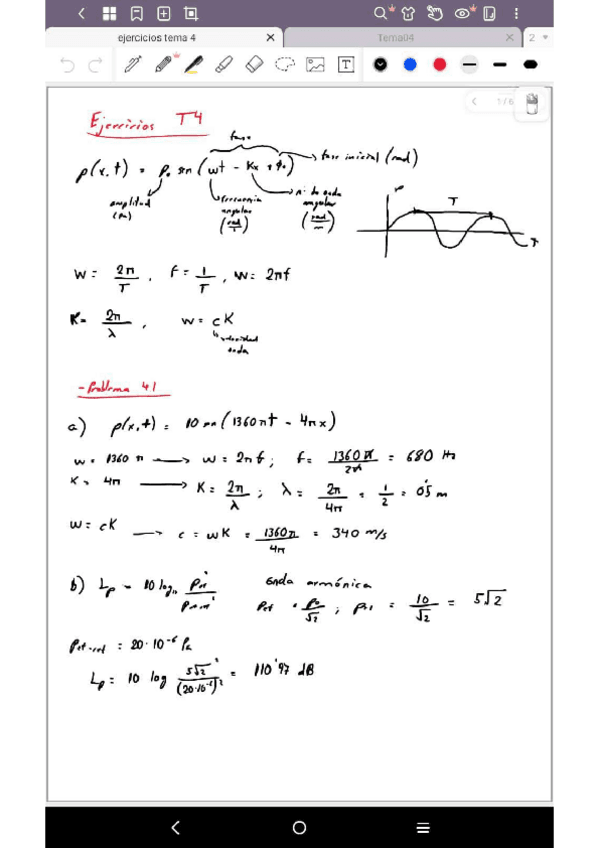 ejercicios tema 4
Tema04
2
1/6
Ejercicios T4
fase
p(x,t) = p₀ sen (wt - Kx + φ₀) → fase inicial (rad)
amplitud (Pa)
frecuencia angular (rad/s)
nº de onda angular (rad/m)
T
w = 2π/T , f = 1/T , w = 2πf
K = 2π/λ , w = cK
↳ velocidad onda
- Problema 4.1
a) p(x,t) = 10 sen (1360πt - 4πx)
w = 1360 π → w = 2πf ; f = 1360π/2π = 680 Hz
K = 4π → K = 2π/λ ; λ = 2π/4π = 1/2 = 0'5 m
w = cK → c = wK = 1360π/4π = 340 m/s
b) Lp = 10 log₁₀ Pef²/Pef-ref² onda armónica
Pef = p₀/√2 ; Pef = 10/√2 = 5√2
Pef-ref = 20·10⁻⁶ Pa
Lp = 10 log 5√2²/(20·10⁻⁶)² = 110'97 dB